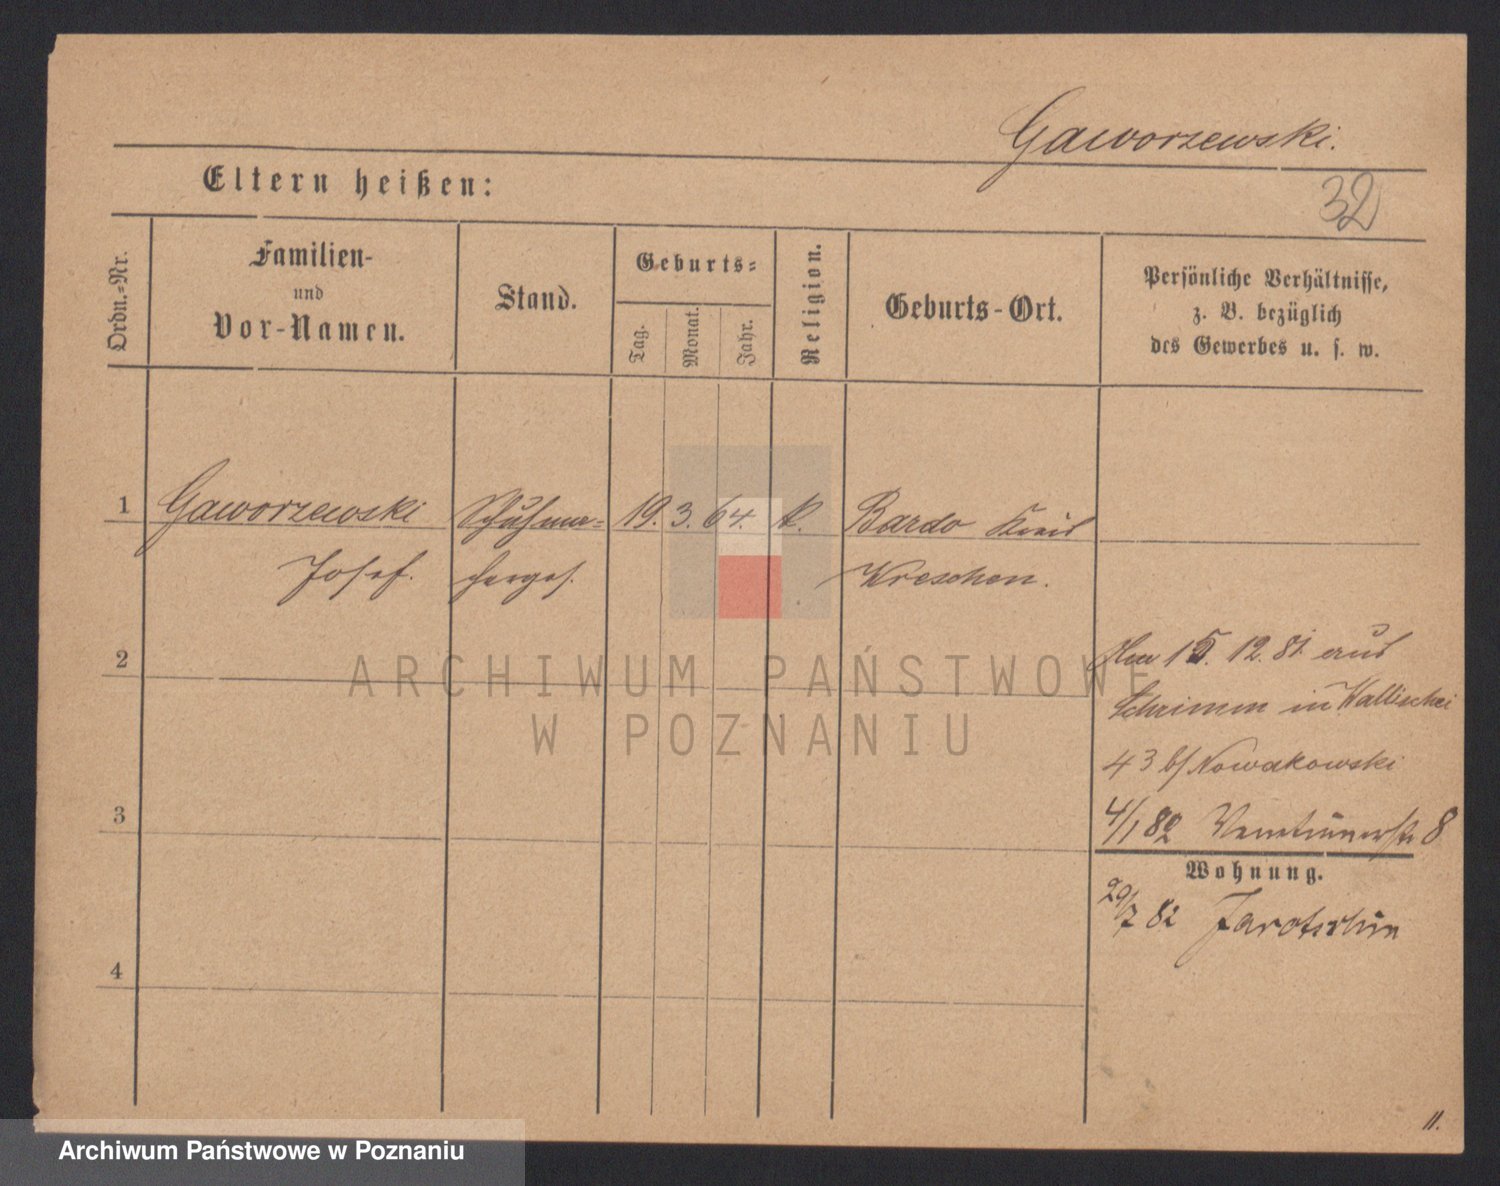 Gaworzewski.
Eltern heißen:
32
Ordn.=Nr.
Familien-
und
Vor-Namen.
Stand.
Geburts=
Tag.
Monat.
Jahr.
Religion.
Geburts-Ort.
Persönliche Verhältnisse,
z. B. bezüglich
des Gewerbes u. s. w.
1 Gaworzewski Schuhma= 19. 3. 64. k. Bardo Kreis
Josef. cherges. Wreschen.
2
Am 15. 12. 81 aus
Schrimm in Wallischei
43 b/ Nowakowski
3
4/1 82 Venetianerstr 8
Wohnung.
29/7 82 Jarotschin
4
ARCHIWUM PAŃSTWOWE
W POZNANIU
11.
Archiwum Państwowe w Poznaniu